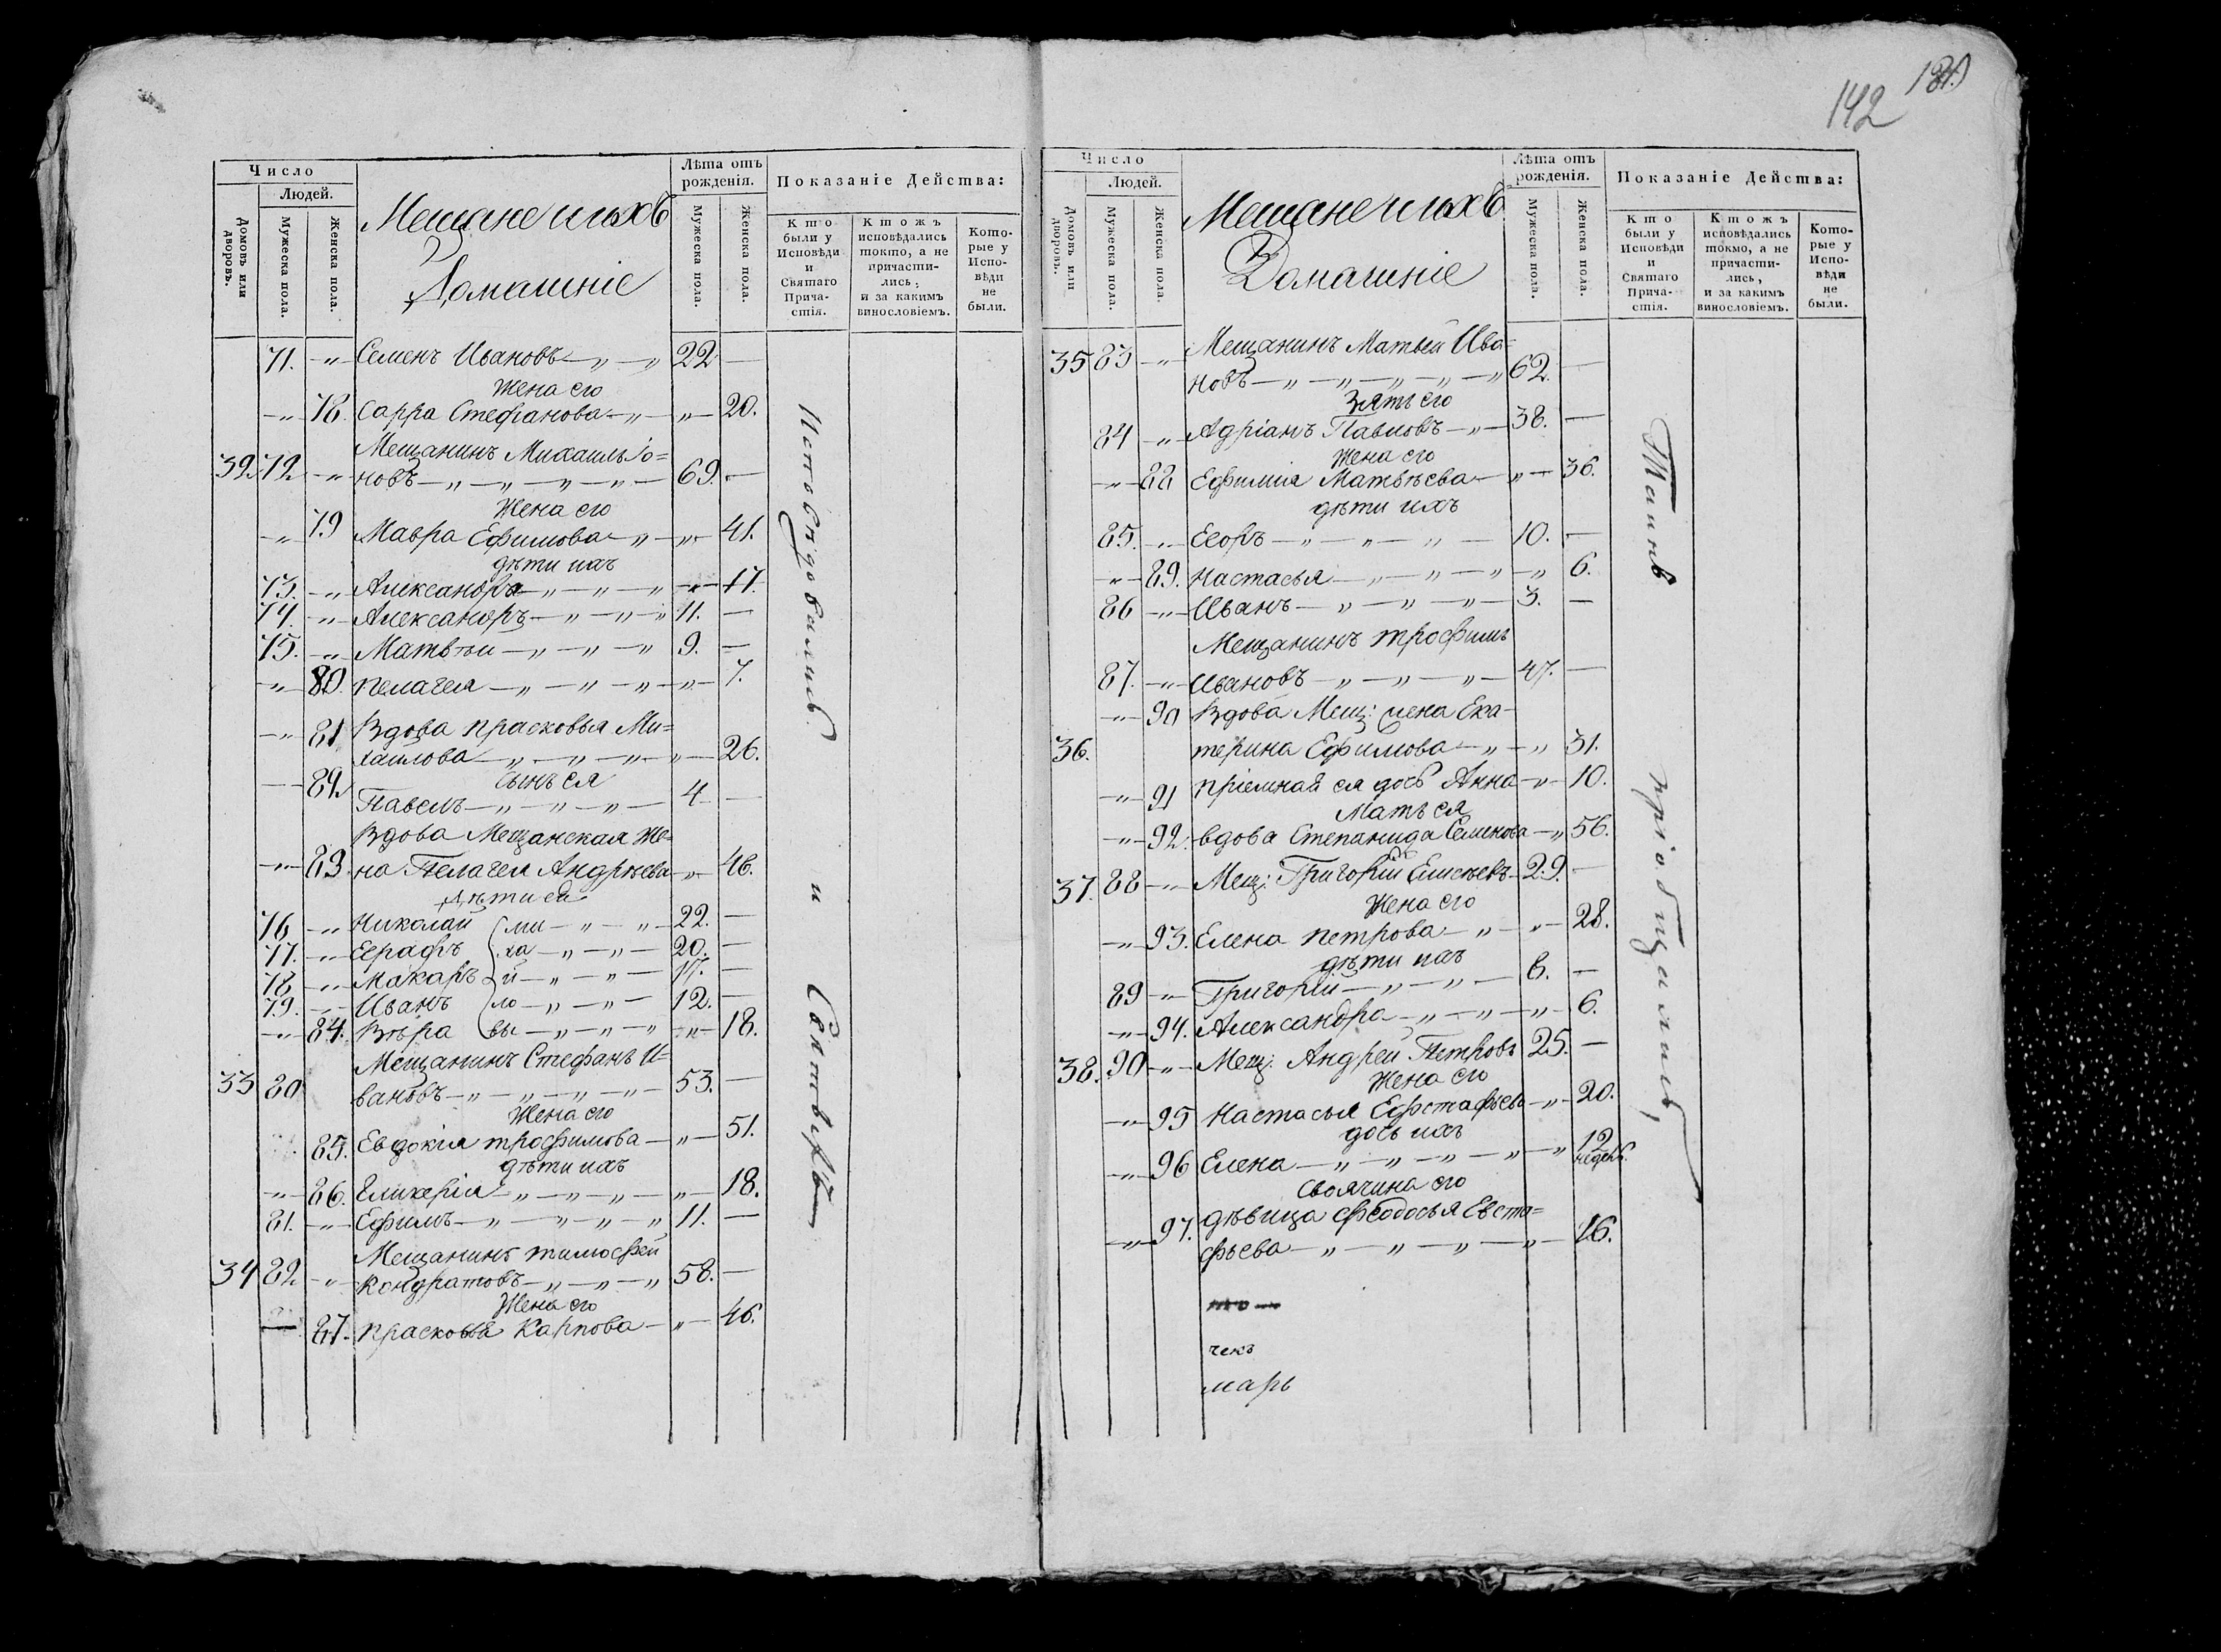 142 181
Число
Людей.
Домовъ или дворовъ.
Мужеска пола.
Женска пола.
Мещане и ихъ
Домашніе
Лѣта отъ рожденія.
Мужеска пола.
Женска пола.
Показаніе Действа:
Кто были у Исповѣди и Святаго Причастія.
Ктожъ исповѣдались токмо, а не причастились, и за какимъ винословіемъ.
Которые у Исповѣди не были.
71. -„- Семенъ Ивановъ -„-„ 22 —
Жена его
-„- 78. Сарра Стефанова -„- „- 20.
Мещанинъ Михаилъ Іо=
32. 72 -„- новъ -„-„-„-„- 69. —
Жена его
-„- 79 Мавра Ефимова -„- „- 41.
дѣти ихъ
73. -„ Александра -„-„-„ -„- 17.
74. -„ Александръ -„-„-„ 11. —
75. -„ Матвѣй -„-„-„ 9. —
-„- 80. Пелагея -„-„-„- „- 7.
-„ 81 Вдова Прасковья Ми=
хаилова -„-„-„- „- 26.
сынъ ея
— 82. Павелъ -„-„-„- 4 —
Вдова Мещанская Же=
-„- 83. на Пелагея Андрѣева -„- 48.
дѣти ея
76 -„ Николай ми -„-„- 22. —
77. -„ Еграфъ ха -„-„- 20. —
78 -„ Макаръ й -„-„- 17. —
79. -„ Иванъ ло -„-„- 12. —
-„- 84. Вѣра вы -„-„-„ -„- 18.
Мещанинъ Стефанъ И=
33 80 вановъ -„-„-„-„- 53. —
Жена его
85. Евдокія Трофимова -„- 51.
дѣти ихъ
-„- 86. Гликерія -„-„-„- „- 18.
81. -„- Ефимъ -„-„-„-„ 11. —
Мещанинъ Тимофей
34 82 -„- Кондратовъ -„-„-„ 58. —
Жена его
— 87. Прасковья Карпова -„- 46.
Исповѣдовались и Святыхъ
Число
Людей.
Домовъ или дворовъ.
Мужеска пола.
Женска пола.
Мещане и ихъ
Домашніе
Лѣта отъ рожденія.
Мужеска пола.
Женска пола.
Показаніе Действа:
Кто были у Исповѣди и Святаго Причастія.
Ктожъ исповѣдались токмо, а не причастились, и за какимъ винословіемъ.
Которые у Исповѣди не были.
35 83 -„- Мещанинъ Матвей Ива=
новъ -„-„-„-„-„ 62. —
Зять его
84 -„- Адріанъ Павловъ -„- 38. —
Жена его
-„- 88 Ефимія Матвѣева -„- 36.
дѣти ихъ
85. -„- Егоръ -„-„-„- 10. —
-„- 89. Настасья -„-„-„-„ 6.
86 -„- Иванъ -„-„-„- 3. —
Мещанинъ Трофимъ
87. -„- Ивановъ -„-„-„- 47. —
-„- 90 Вдова Мещ: жена Ека-
36. терина Ефимова -„-„ 31.
-„- 91 Пріемная ея дочь Анна -„- 10.
Мать ея
-„- 92. вдова Степанида Семенова -„ 56.
37. 88 -„- Мещ: Григорій Елисѣевъ 29. —
Жена его
-„- 93. Елена Петрова -„-„- 28.
дѣти ихъ
89 -„- Григорій -„-„- 8. —
-„- 94. Александра -„-„-„- 6.
38. 90 -„- Мещ: Андрей Петровъ 25. —
Жена его
-„- 95 Настасья Ефстафьева -„- 20.
дочь ихъ
-„- 96 Елена -„-„-„-„-„ 12 недель.
Своячина его
-„- 97. дѣвица Феодосья Евста=
фьева -„-„-„-„- 16.
чекъ
марь
Таинъ пріобщались,